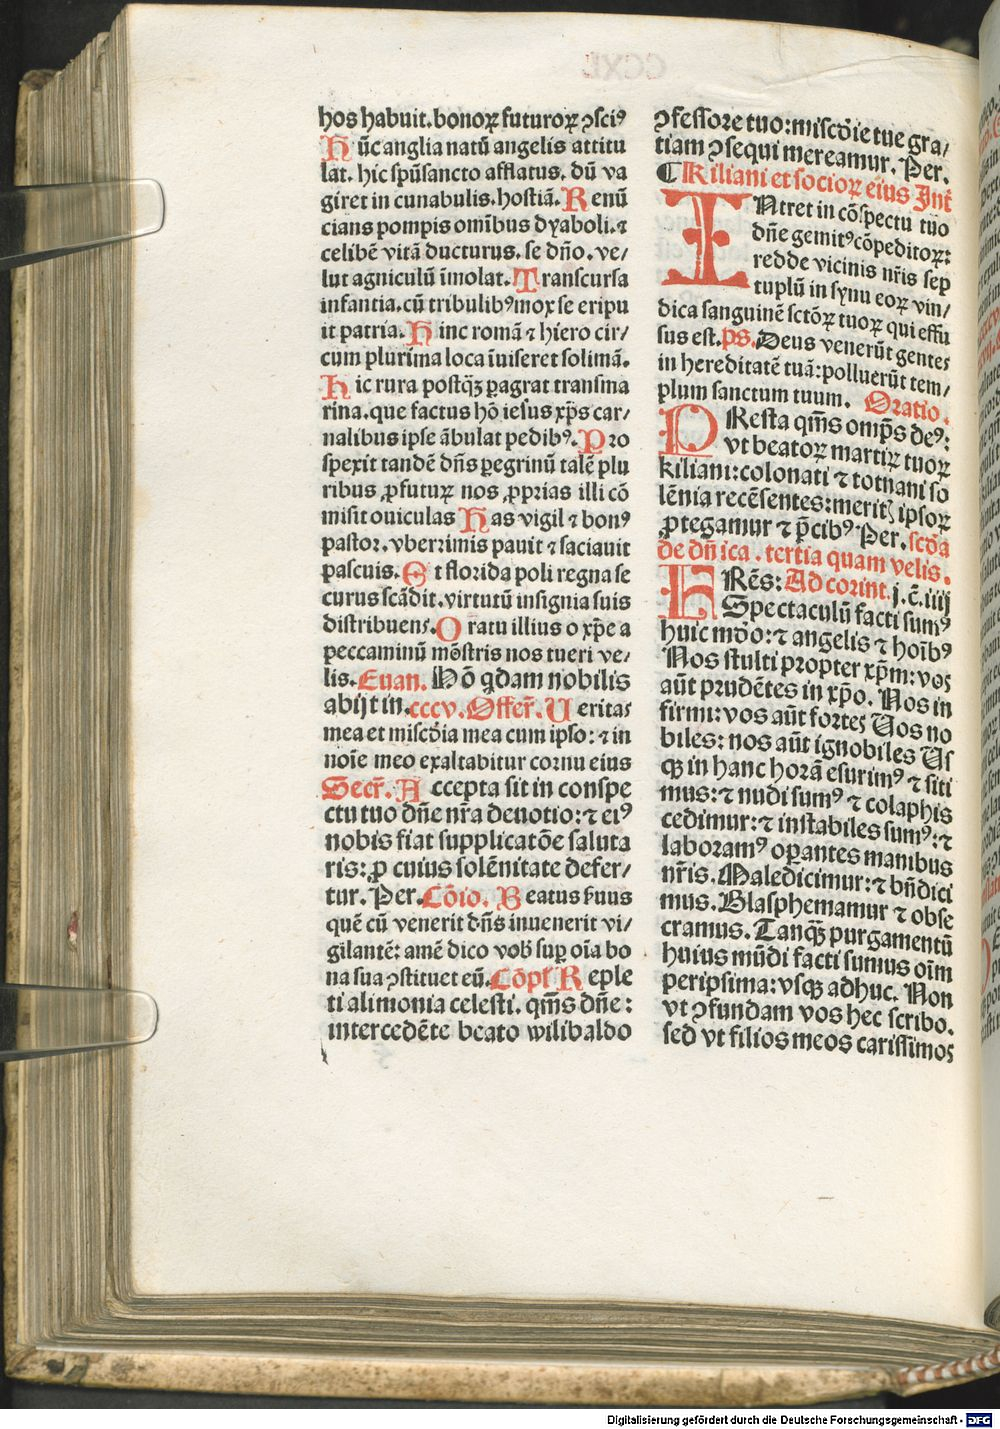 hos habuit. bonoꝝ futuroꝝ ↄsciꝰ
Hũc anglia natũ angelis attitu
lat. hic spũsancto afflatus. dũ va
giret in cunabulis. hostiã. Renũ
cians pompis omĩbus dyaboli. ⁊
celibẽ vitã ducturus. se dño. ve/
lut agniculũ ĩmolat. Transcursa
infantia. cũ tribulibꝰ mox se eripu
it patria. Hinc romã ⁊ hiero cir/
cum plurĩma loca ĩuiseret solimã.
Hic rura postqꝫ ꝑagrat transma
rina. que factus hõ iesus xp̃s car/
nalibus ipse ãbulat pedibꝰ. Pro
spexit tandẽ dñs ꝑegrinũ talẽ plu
ribus ꝓfuturꝝ nos ꝓprias illi cõ
misit ouiculas Has vigil ⁊ bonꝰ
pastor. vberrimis pauit ⁊ saciauit
pascuis. Et florida poli regna se
curus scãdit. virtutũ insignia suis
distribuens. Oratu illius o xp̃e a
peccaminũ mõstris nos tueri ve/
lis. Euan. Hõ qdam nobilis
abijt in. cccv. Offer̃. Ueritas
mea et miscd̃ia mea cum ipso: ⁊ in
noĩe meo exaltabitur cornu eius
Secr̃. Accepta sit in conspe
ctu tuo dñe nr̃a deuotio: ⁊ eiꝰ
nobis fiat supplicatõe saluta
ris: ꝓ cuius solẽnitate defer/
tur. Per. Cõio. Beatus ẜuus
quẽ cũ venerit dñs inuenerit vi/
gilantẽ: amẽ dico vob̃ suꝑ oĩa bo
na sua ↄstituet eũ. Cõpl̃ Reple
ti alimonia celesti. qm̃s dñe:
intercedẽte beato wilibaldo
ↄfessore tuo: miscd̃ie tue gra/
tiam ↄsequi mereamur. Per.
¶ Kiliani et socioꝝ eius Int̃
INtret in cõspectu tuo
dñe gemitꝰ cõpeditoꝝ:
redde vicinis nr̃is sep
tuplũ in synu eoꝝ vin/
dica sanguinẽ sctõꝝ tuoꝝ qui effu
sus est. ps. Deus venerũt gentes
in hereditatẽ tuã: polluerũt tem/
plum sanctum tuum. Oratio.
PResta qm̃s omp̃s deꝰ:
vt beatoꝝ martiꝝ tuoꝝ
kiliani: colonati ⁊ totnani so
lẽnia recẽsentes: meritꝭ ipsoꝝ
ꝓtegamur ⁊ p̃cibꝰ Per. scd̃a
de dñica. tertia quam velis.
FRẽs: Ad corint. j. c̃. iiij
Spectaculũ facti sumꝰ
huic mdõ: ⁊ angelis ⁊ hoĩbꝰ
Nos stulti propter xp̃m: vos
aũt prudẽtes in xp̃o. Nos in
firmi: vos aũt fortes Uos no
biles: nos aũt ignobiles Us
qꝫ in hanc horã esurimꝰ ⁊ siti
mus: ⁊ nudi sumꝰ ⁊ colaphis
cedimur: ⁊ instabiles sumꝰ: ⁊
laboramꝰ oꝑantes manibus
nr̃is. Maledicimur: ⁊ bñdici
mus. Blasphemamur ⁊ obse
cramus. Tanqꝫ purgamentũ
huius mũdi facti sumus oĩm
peripsima: vsqꝫ adhuc. Non
vt ↄfundam vos hec scribo.
sed vt filios meos carissimos
Digitalisierung gefördert durch die Deutsche Forschungsgemeinschaft - DFG